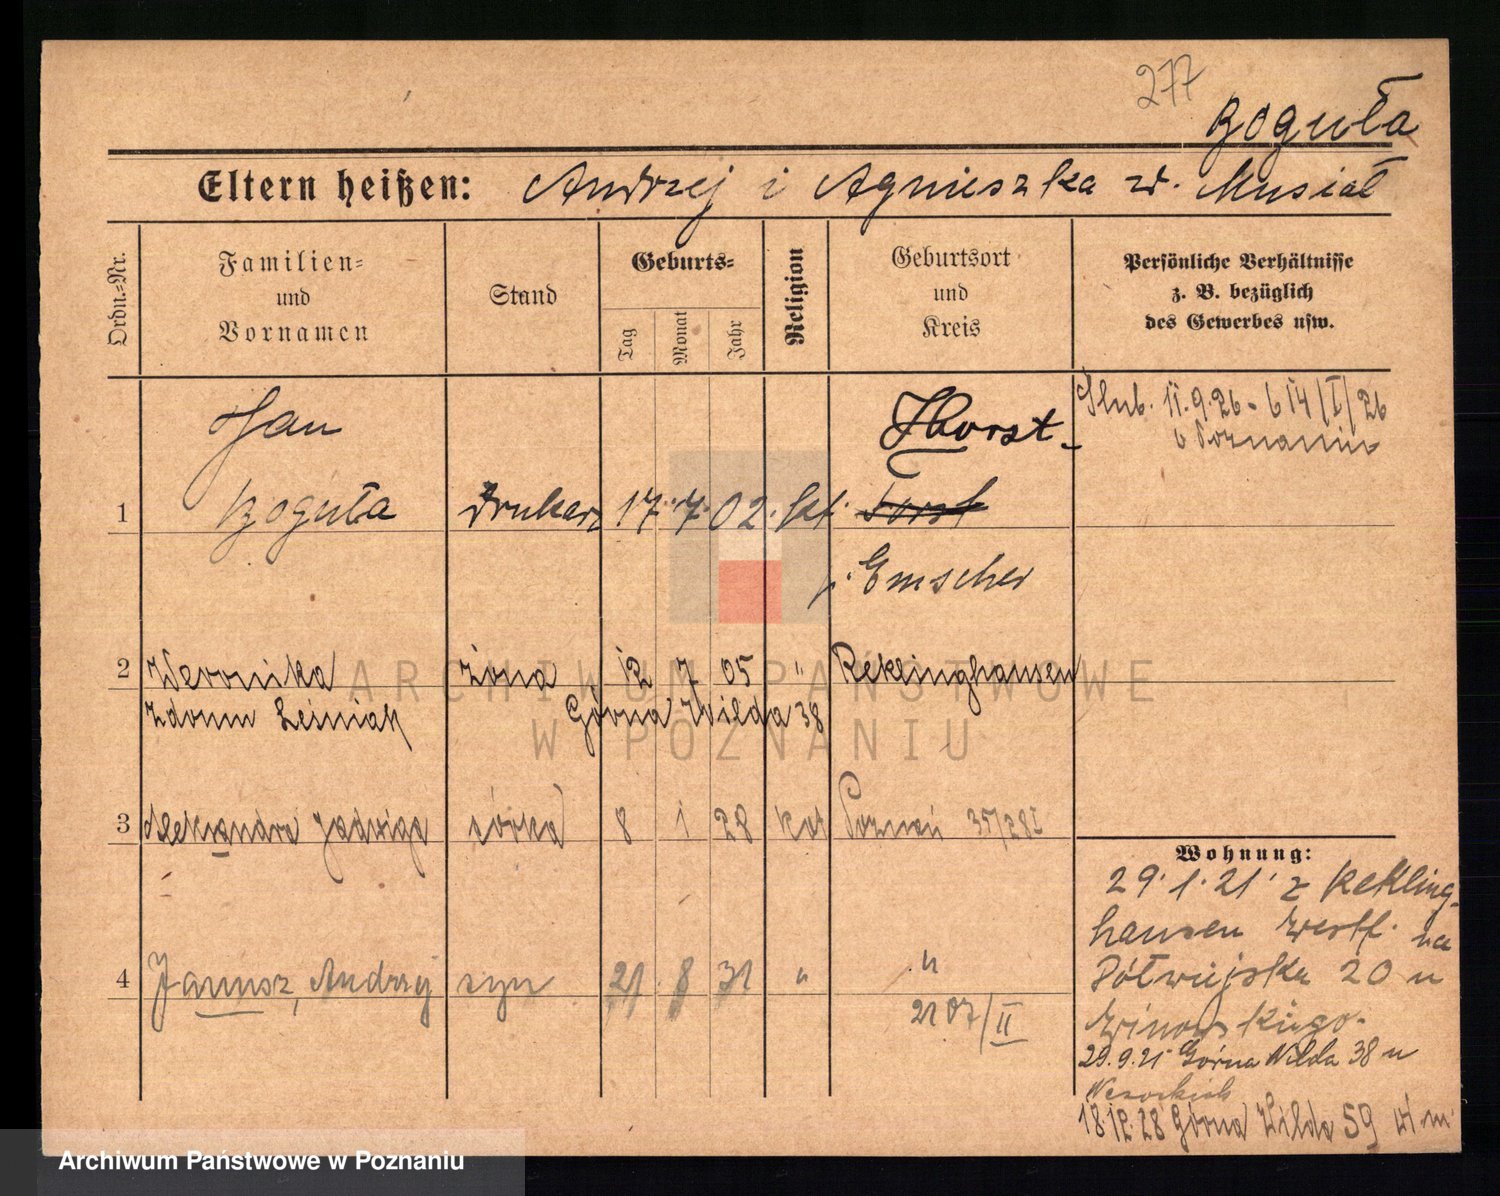 277
Boguła
Eltern heißen: Andrzej i Agnieszka zd. Musiał
Ordn.-Nr.
Familien-
und
Vornamen
Stand
Geburts-
Tag
Monat
Jahr
Religion
Geburtsort
und
Kreis
Persönliche Verhältnisse
z. B. bezüglich
des Gewerbes usw.
Jan
Horst-
Ślub. 11.9.26 - 614/I/26
w Poznaniu
1 Boguła drukarz 17. 7. 02. kt. Forst
Emscher
2 Weronika żona 12 7 05 " Reklinghausen
zdomu Leśniak Górna Wilda 38
3 Aleksandra Jadwiga córka 8 1 28 kat Poznań 35/28I
Wohnung:
29.1.21 z Rekling-
hausen Westf. na
4 Janusz, Andrzej syn 21 8 31 " "
Półwiejska 20 u
2107/II
29.9.21 Górna Wilda 38 u
18.12.28 Górna Wilda 59 wł m.
ARCHIWUM PAŃSTWOWE
W POZNANIU
Archiwum Państwowe w Poznaniu